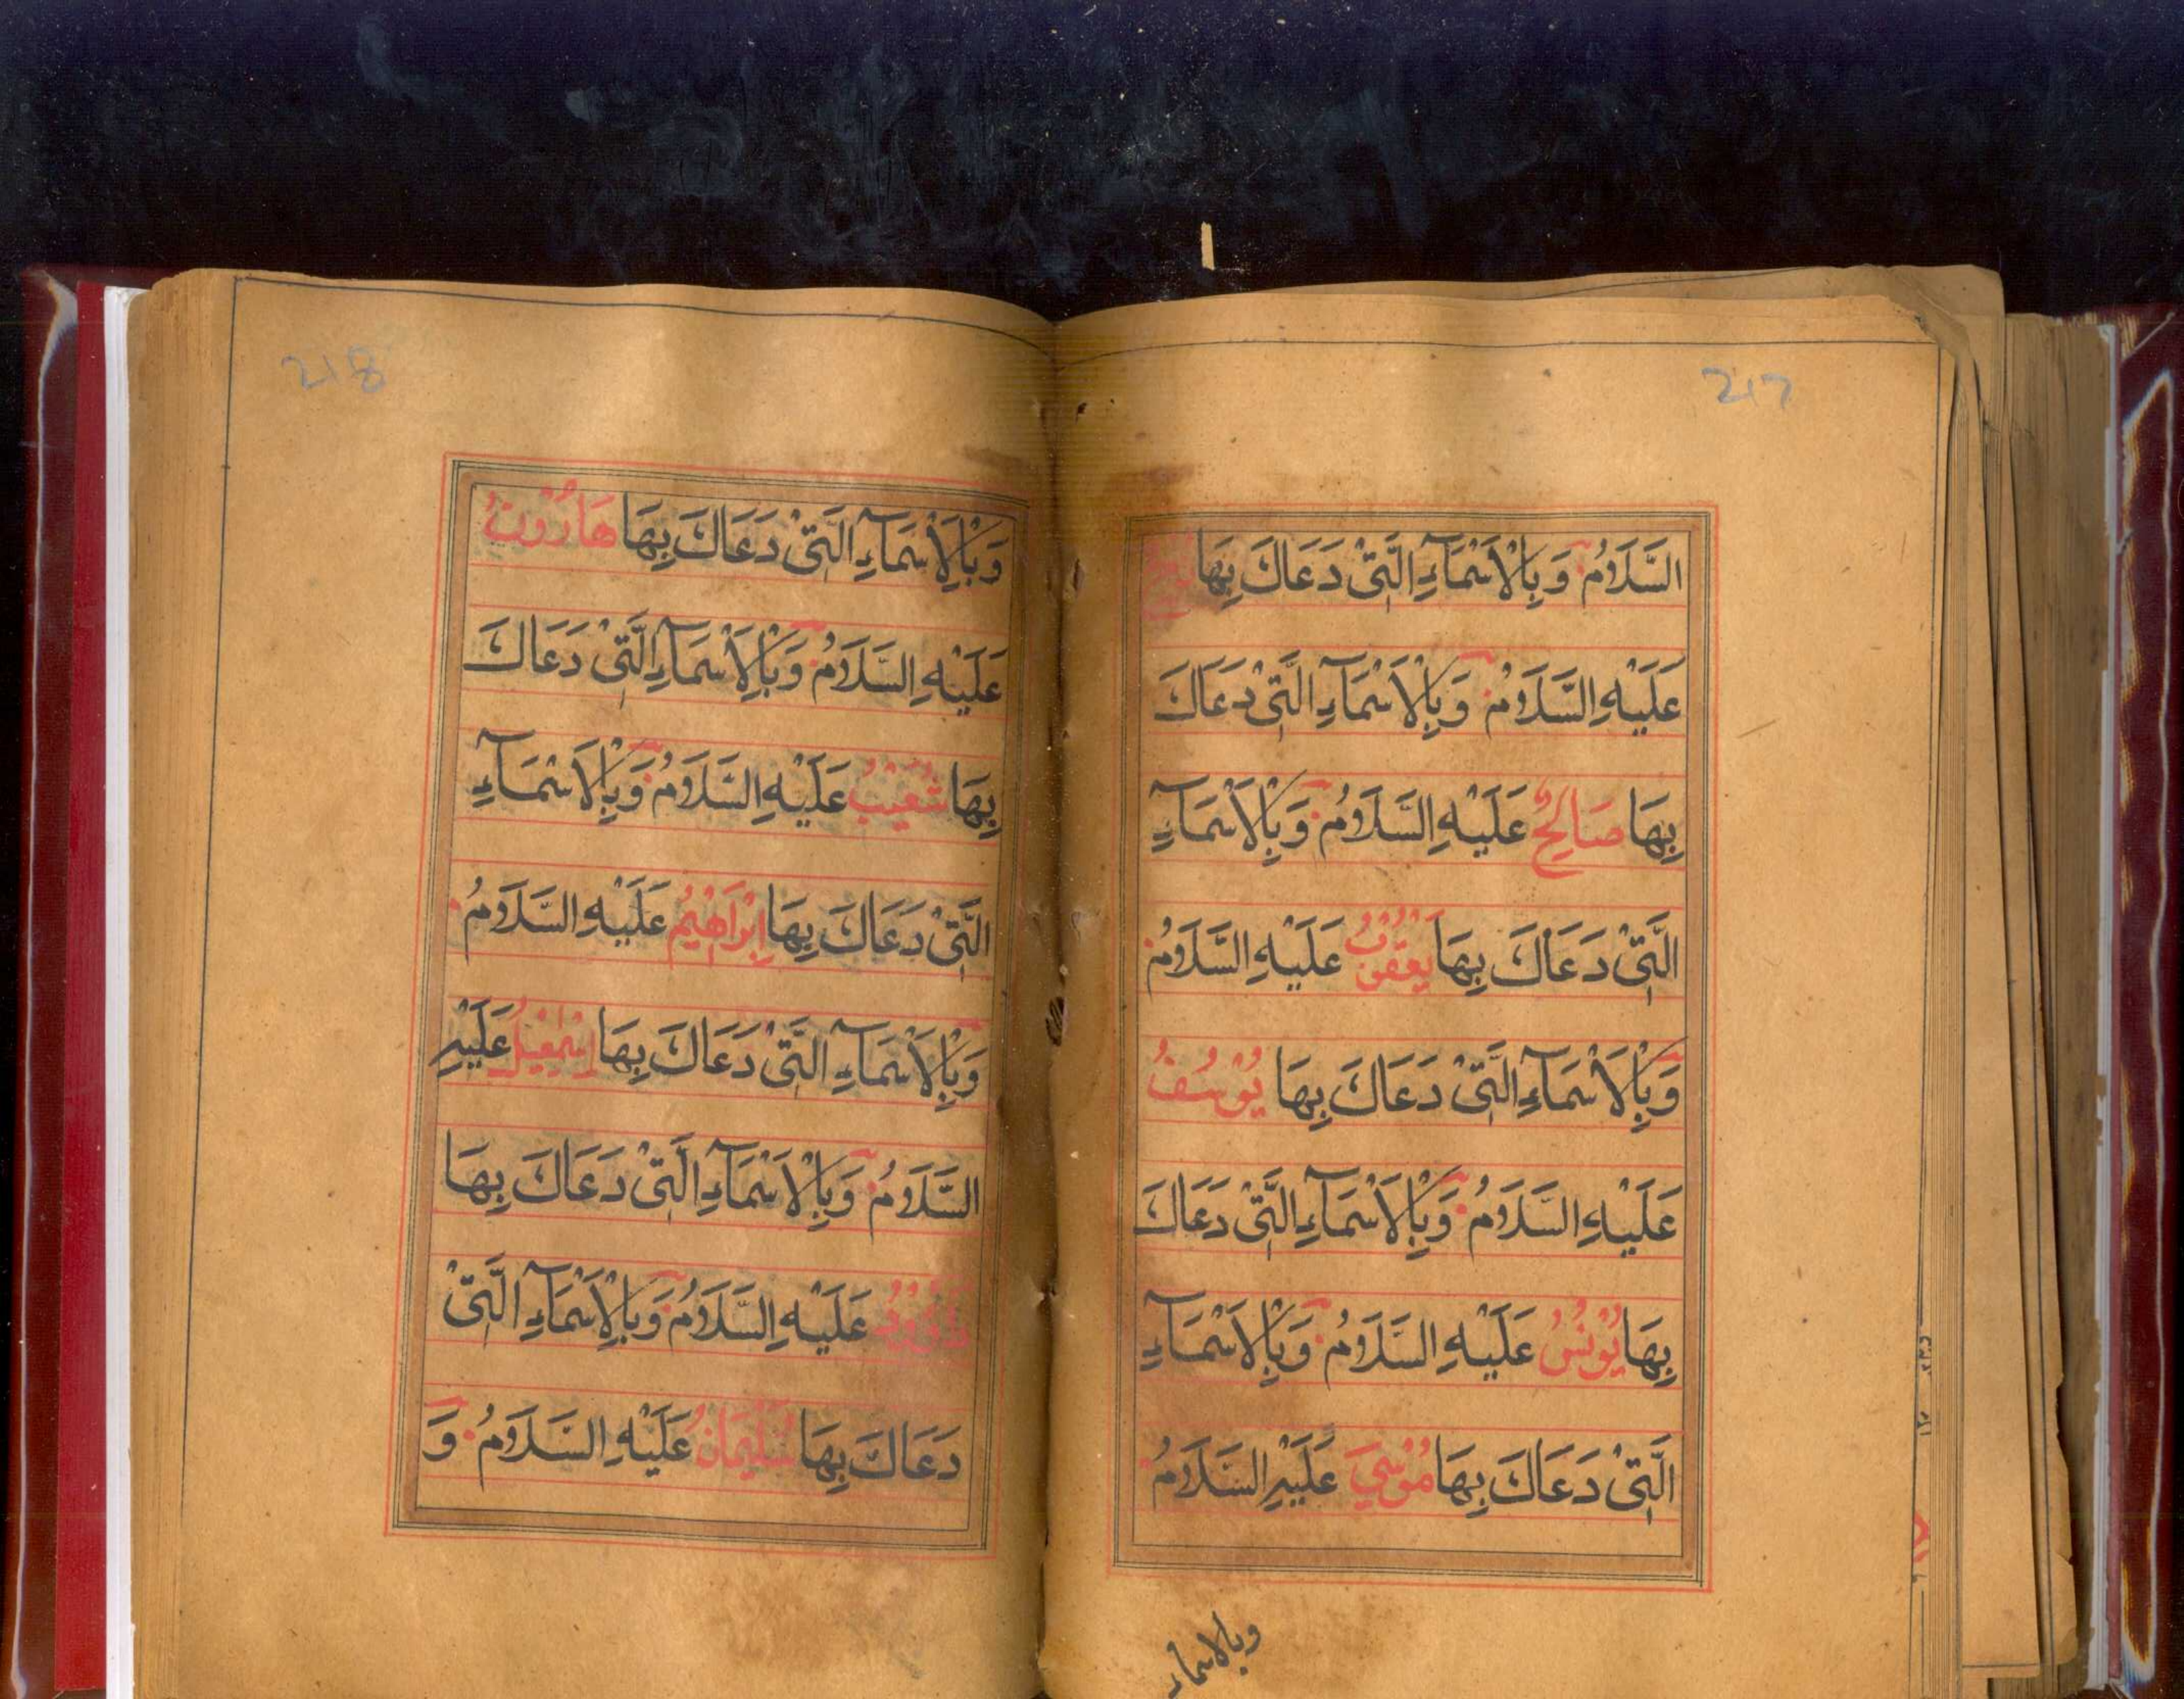 217
السَّلَامُ وَبِالْاَسْمَآءِ الَّتِیْ دَعَاكَ بِهَا
عَلَيْهِ السَّلَامُ وَبِالْاَسْمَآءِ الَّتِیْ دَعَاكَ
بِهَا صَالِحٌ عَلَيْهِ السَّلَامُ وَبِالْاَسْمَآءِ
الَّتِیْ دَعَاكَ بِهَا يَعْقُوْبُ عَلَيْهِ السَّلَامُ
وَبِالْاَسْمَآءِ الَّتِیْ دَعَاكَ بِهَا يُوْسُفُ
عَلَيْهِ السَّلَامُ وَبِالْاَسْمَآءِ الَّتِیْ دَعَاكَ
بِهَا يُوْنُسُ عَلَيْهِ السَّلَامُ وَبِالْاَسْمَآءِ
الَّتِیْ دَعَاكَ بِهَا مُوْسٰی عَلَيْهِ السَّلَامُ
وبالاسماء
218
وَبِالْاَسْمَآءِ الَّتِیْ دَعَاكَ بِهَا هَارُوْنُ
عَلَيْهِ السَّلَامُ وَبِالْاَسْمَآءِ الَّتِیْ دَعَاكَ
بِهَا شُعَيْبُ عَلَيْهِ السَّلَامُ وَبِالْاَسْمَآءِ
الَّتِیْ دَعَاكَ بِهَا اِبْرَاهِيْمُ عَلَيْهِ السَّلَامُ
وَبِالْاَسْمَآءِ الَّتِیْ دَعَاكَ بِهَا اِسْمٰعِيْلُ عَلَيْهِ
السَّلَامُ وَبِالْاَسْمَآءِ الَّتِیْ دَعَاكَ بِهَا
دَاوُوْدُ عَلَيْهِ السَّلَامُ وَبِالْاَسْمَآءِ الَّتِیْ
دَعَاكَ بِهَا سُلَيْمَانُ عَلَيْهِ السَّلَامُ وَ